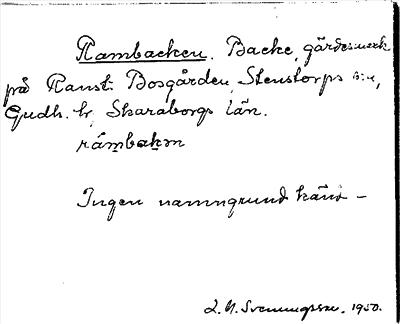 Rambacken. Backe, gärdesmark
på Ranst. Bosgården, Stenstorps s:n,
Gudh. hr, Skaraborgs län.
råmbakən
Ingen namngrund känd –
L. A. Svenningsson. 1950.